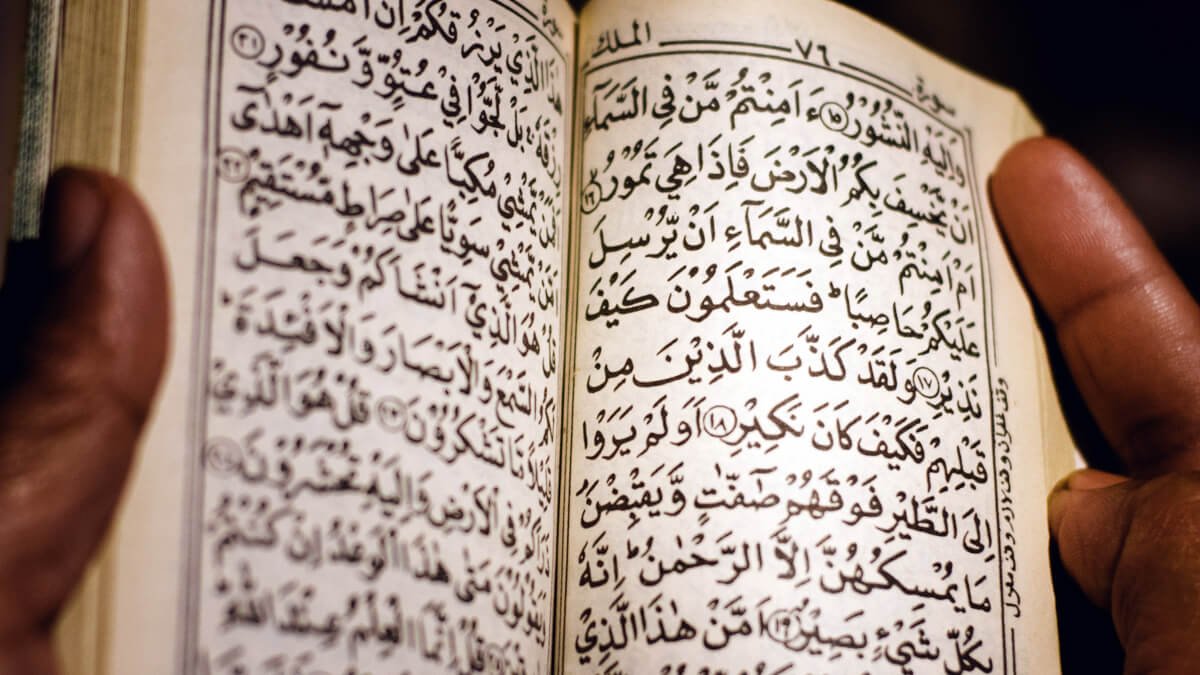 سورة ٧٦ الملك
وَاِلَيْهِ النُّشُوْرُ ﴿١٥﴾ ءَ اَمِنْتُمْ مَّنْ فِي السَّمَآءِ
اَنْ يَّخْسِفَ بِكُمُ الْاَرْضَ فَاِذَا هِيَ تَمُوْرُ ﴿١٦﴾
اَمْ اَمِنْتُمْ مَّنْ فِي السَّمَآءِ اَنْ يُّرْسِلَ
عَلَيْكُمْ حَاصِبًا ؕ فَسَتَعْلَمُوْنَ كَيْفَ
نَذِيْرِ ﴿١٧﴾ وَلَقَدْ كَذَّبَ الَّذِيْنَ مِنْ
قَبْلِهِمْ فَكَيْفَ كَانَ نَكِيْرِ ﴿١٨﴾ اَوَلَمْ يَرَوْا
اِلَى الطَّيْرِ فَوْقَهُمْ صٰٓفّٰتٍ وَّيَقْبِضْنَ
مَا يُمْسِكُهُنَّ اِلَّا الرَّحْمٰنُ ؕ اِنَّهٗ
بِكُلِّ شَيْءٍۢ بَصِيْرٌ ﴿١٩﴾ اَمَّنْ هٰذَا الَّذِيْ
سورة
هٰذَا الَّذِيْ يَرْزُقُكُمْ اِنْ اَمْسَكَ
رِزْقَهٗ ۚ بَلْ لَّجُّوْا فِيْ عُتُوٍّ وَّنُفُوْرٍ ﴿٢١﴾
اَفَمَنْ يَّمْشِيْ مُكِبًّا عَلٰى وَجْهِهٖٓ اَهْدٰٓى
اَمَّنْ يَّمْشِيْ سَوِيًّا عَلٰى صِرَاطٍ مُّسْتَقِيْمٍ ﴿٢٢﴾
قُلْ هُوَ الَّذِيْٓ اَنْشَاَكُمْ وَجَعَلَ
لَكُمُ السَّمْعَ وَالْاَبْصَارَ وَالْاَفْـِٕدَةَ ؕ
قَلِيْلًا مَّا تَشْكُرُوْنَ ﴿٢٣﴾ قُلْ هُوَ الَّذِيْ
ذَرَاَكُمْ فِي الْاَرْضِ وَاِلَيْهِ تُحْشَرُوْنَ ﴿٢٤﴾
وَيَقُوْلُوْنَ مَتٰى هٰذَا الْوَعْدُ اِنْ كُنْتُمْ
قُلْ اِنَّمَا الْعِلْمُ عِنْدَ اللّٰهِ